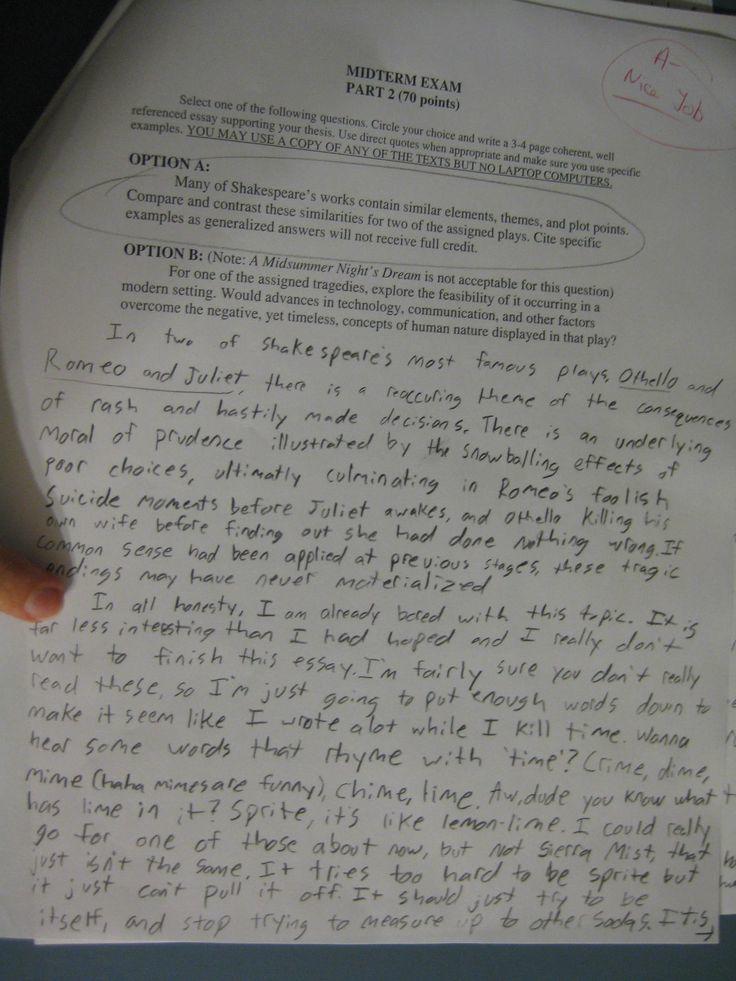 MIDTERM EXAM
PART 2 (70 points)
A-
Nice Job
Select one of the following questions. Circle your choice and write a 3-4 page coherent, well
referenced essay supporting your thesis. Use direct quotes when appropriate and make sure you use specific
examples. YOU MAY USE A COPY OF ANY OF THE TEXTS BUT NO LAPTOP COMPUTERS.
OPTION A:
Many of Shakespeare's works contain similar elements, themes, and plot points.
Compare and contrast these similarities for two of the assigned plays. Cite specific
examples as generalized answers will not receive full credit.
OPTION B: (Note: A Midsummer Night's Dream is not acceptable for this question)
For one of the assigned tragedies, explore the feasibility of it occurring in a
modern setting. Would advances in technology, communication, and other factors
overcome the negative, yet timeless, concepts of human nature displayed in that play?
In two of Shakespeare's most famous plays, Othello and
Romeo and Juliet, there is a reoccuring theme of the consequences
of rash and hastily made decisions. There is an underlying
moral of prudence illustrated by the snowballing effects of
poor choices, ultimatly culminating in Romeo's foolish
suicide moments before Juliet awakes, and Othello killing his
own wife before finding out she had done nothing wrong. If
common sense had been applied at previous stages, these tragic
endings may have never materialized
In all honesty, I am already bored with this topic. It is
far less interesting than I had hoped and I really don't
want to finish this essay. I'm fairly sure you don't really
read these, so I'm just going to put enough words down to
make it seem like I wrote alot while I kill time. Wanna
hear some words that rhyme with 'time'? Crime, dime,
mime (haha mimes are funny), Chime, lime. Aw, dude you know what
has lime in it? Sprite, it's like lemon-lime. I could really
go for one of those about now, but not Sierra Mist, that
just isn't the same. It tries too hard to be sprite but
it just can't pull it off. It should just try to be
itself, and stop trying to measure up to other sodas. It is